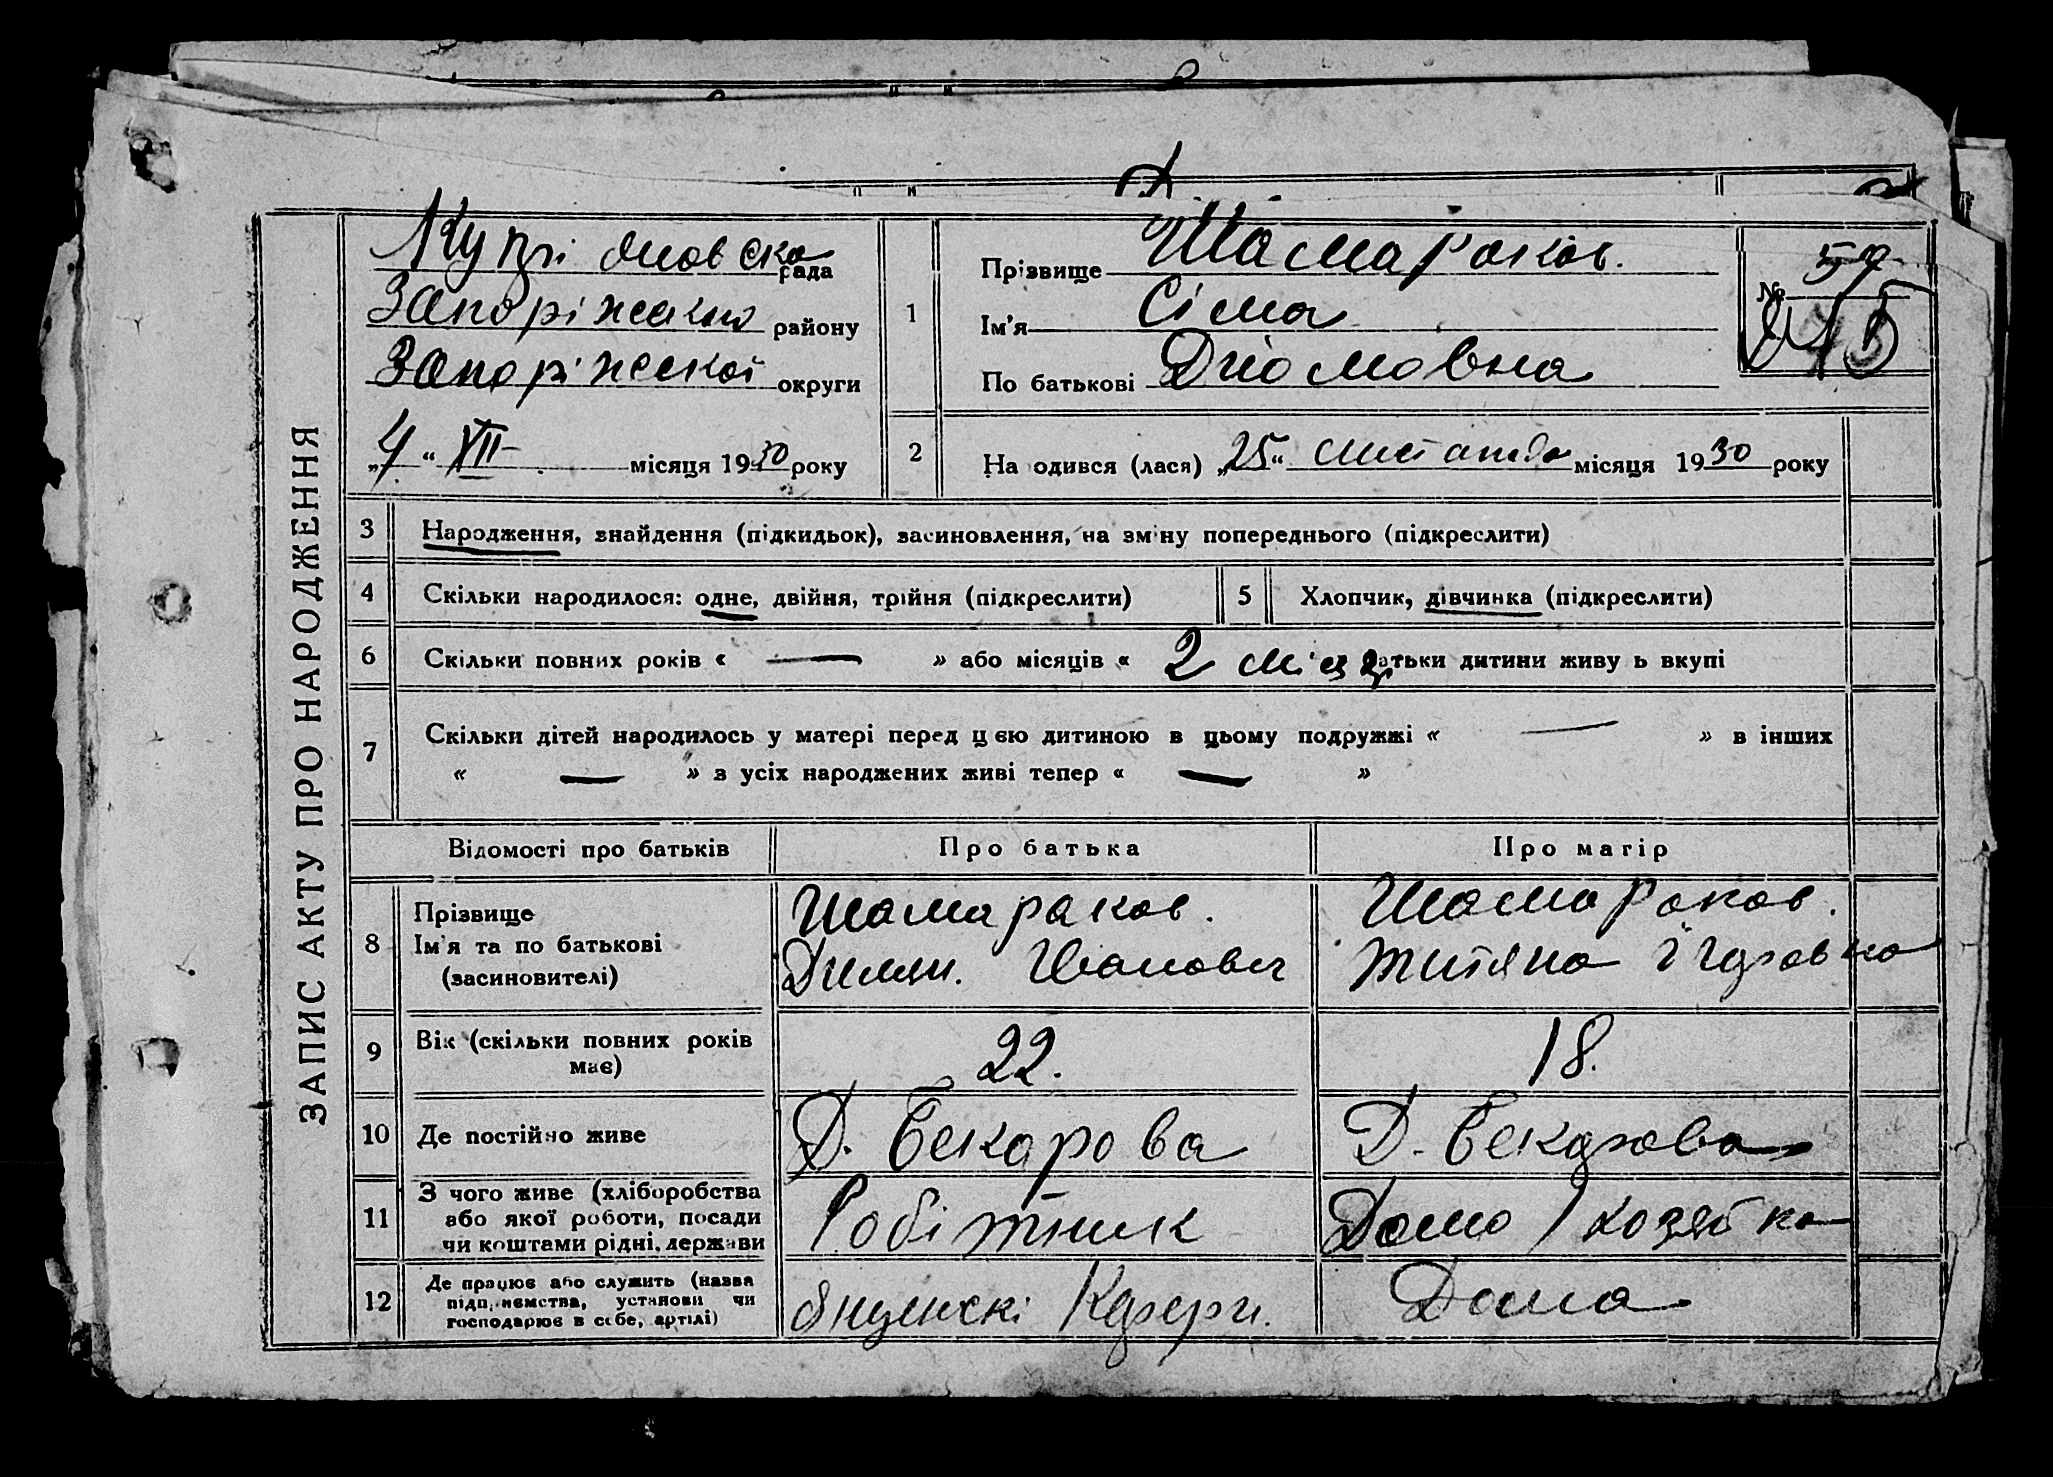 ЗАПИС АКТУ ПРО НАРОДЖЕННЯ
рада
району
Запоріжскої округи
„4“ XII місяця 1930 року
1
Прізвище Шамараков.
Ім'я Сіма
По батькові
№ 59
2 На одився (лася) „25“ листопада місяця 1930 року
3 Народження, знайдення (підкидьок), засиновлення, на зміну попереднього (підкреслити)
4 Скільки народилося: одне, двійня, трійня (підкреслити)
5 Хлопчик, дівчинка (підкреслити)
6 Скільки повних років « — » або місяців « 2 батьки дитини живу ь вкупі
7 Скільки дітей народилось у матері перед цією дитиною в цьому подружжі « — » в інших
« — » з усіх народжених живі тепер « — »
Відомості про батьків Про батька Про матір
8 Прізвище
Ім'я та по батькові
(засиновителі)
Шамараков.
Іванович
Шамараков.
9 Вік (скільки повних років
має)
22.
18.
10 Де постійно живе
Д. Бекарова
Д. Бекарова
11 З чого живе (хліборобства
або якої роботи, посади
чи коштами рідні, держави
Робітник
Домохозяйка
12 Де працює або служить (назва
підприємства, установи чи
господарює в себе, артілі)
Дома